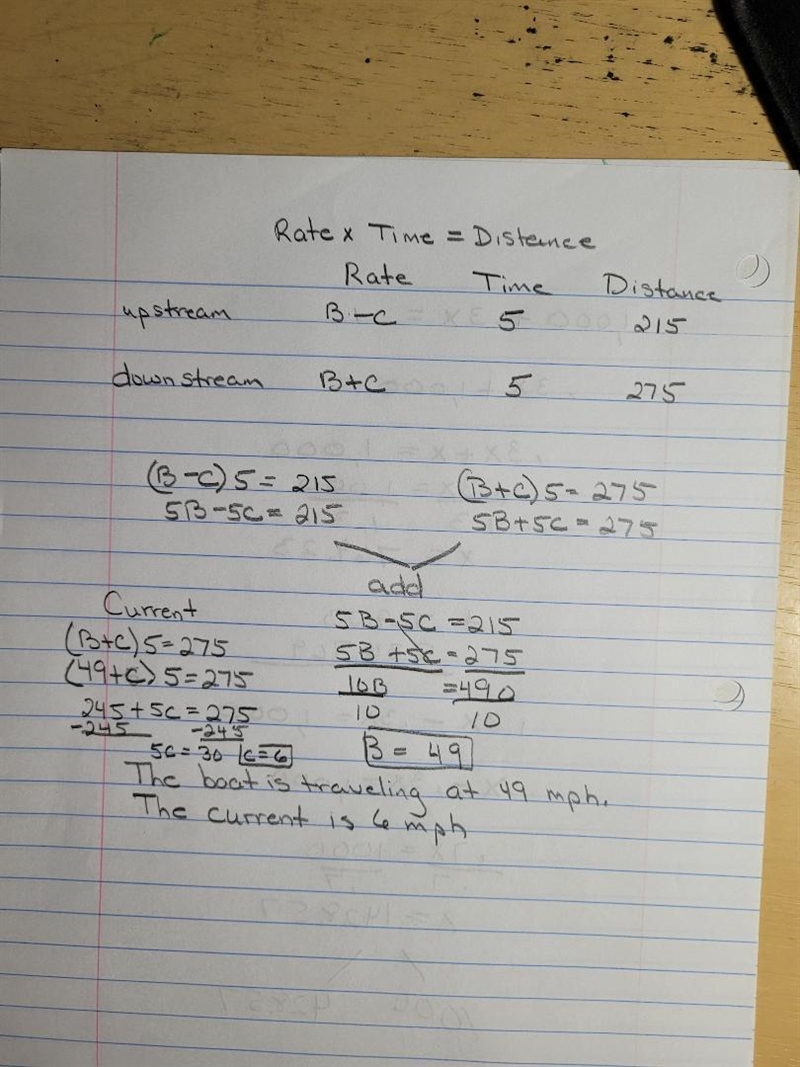 Rate x Time = Distance
Rate Time Distance
upstream B-C 5 215
downstream B+C 5 275
(B-C)5 = 215 (B+C)5 = 275
5B-5C = 215 5B+5C = 275
add
Current
(B+C)5=275
(49+C)5=275
245+5C = 275
-245 -245
5C = 30 C=6
5B-5C = 215
5B+5C = 275
10B = 490
10 10
B = 49
The boat is traveling at 49 mph.
The current is 6 mph